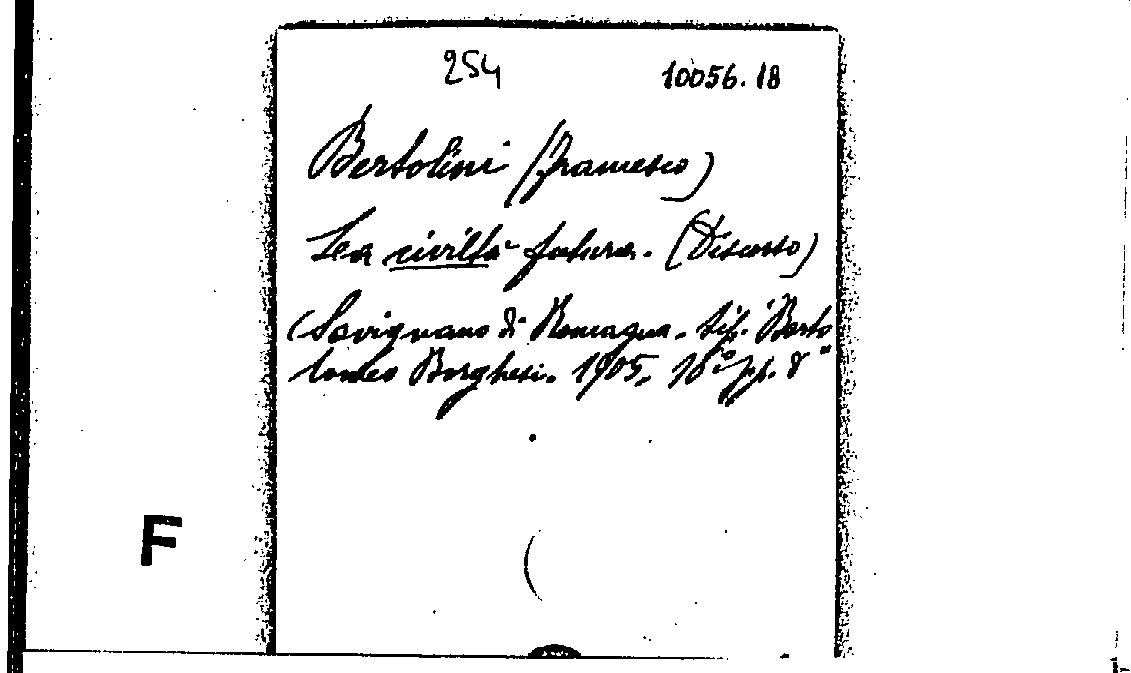 254 10056.18
Bertolini (Francesco)
La civiltà futura. (Discorso)
(Savignano di Romagna. tip. Barto
lomeo Borghesi. 1905, 16° pp. 8°
F